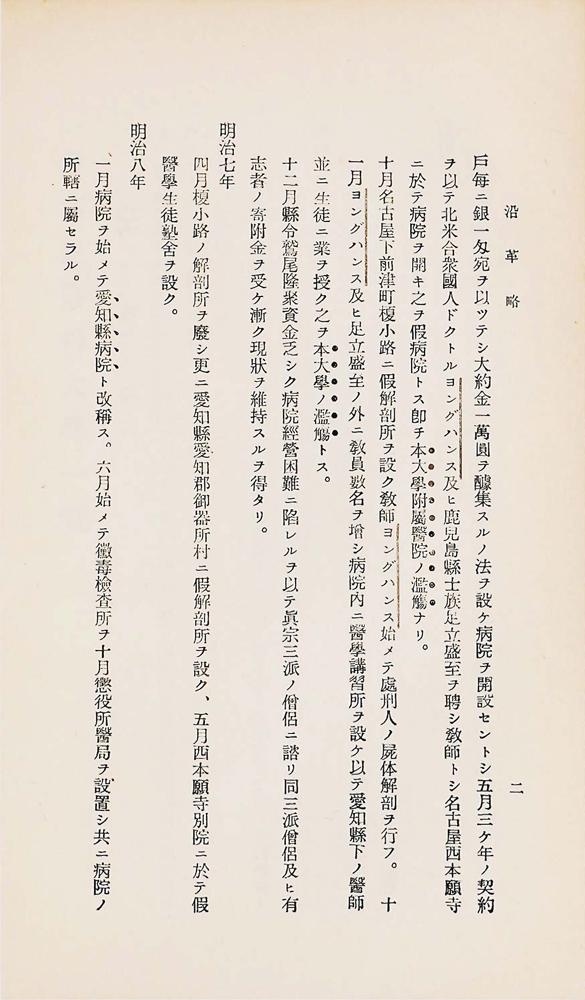 沿革略
二
戶每ニ銀一匁宛ヲ以ツテシ大約金一萬圓ヲ醵集スルノ法ヲ設ケ病院ヲ開設セントシ五月三ケ年ノ契約
ヲ以テ北米合衆國人ドクトルヨングハンス及ヒ鹿兒島縣士族足立盛至ヲ聘シ敎師トシ名古屋西本願寺
ニ於テ病院ヲ開キ之ヲ假病院トス卽チ本大學附屬醫院ノ濫觴ナリ。
十月名古屋下前津町榎小路ニ假解剖所ヲ設ク敎師ヨングハンス始メテ處刑人ノ屍体解剖ヲ行フ。十
一月ヨングハンス及ヒ足立盛至ノ外ニ敎員數名ヲ增シ病院內ニ醫學講習所ヲ設ケ以テ愛知縣下ノ醫師
並ニ生徒ニ業ヲ授ク之ヲ本大學ノ濫觴トス。
十二月縣令鷲尾隆聚資金乏シク病院經營困難ニ陷レルヲ以テ眞宗三派ノ僧侶ニ諮リ同三派僧侶及ヒ有
志者ノ寄附金ヲ受ケ漸ク現狀ヲ維持スルヲ得タリ。
明治七年
四月榎小路ノ解剖所ヲ廢シ更ニ愛知縣愛知郡御器所村ニ假解剖所ヲ設ク、五月西本願寺別院ニ於テ假
醫學生徒塾舍ヲ設ク。
明治八年
一月病院ヲ始メテ愛知縣病院ト改稱ス。六月始メテ黴毒檢查所ヲ十月懲役所醫局ヲ設置シ共ニ病院ノ
所轄ニ屬セラル。